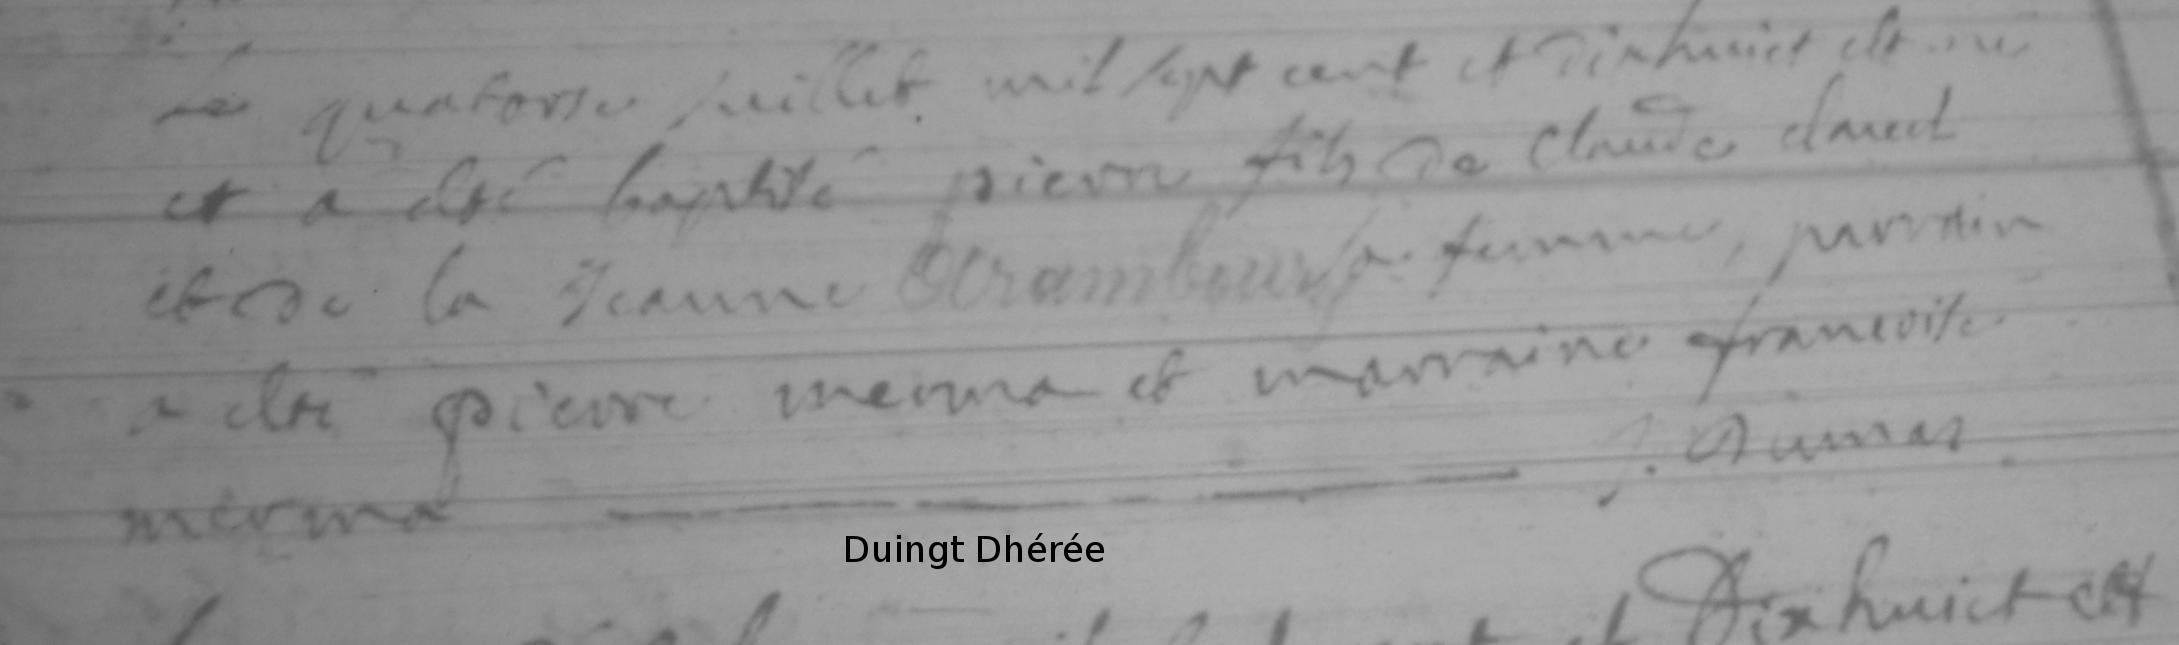 Le quatorse juillet mil sept cent et dixhuict est né
et a esté baptisé pierre fils de Claude clavel
et de la Jeanne Strambour sa femme, parrain
a esté pierre merma et marraine francoise
merma J. Dumas
Duingt Dhérée
Dixhuict est